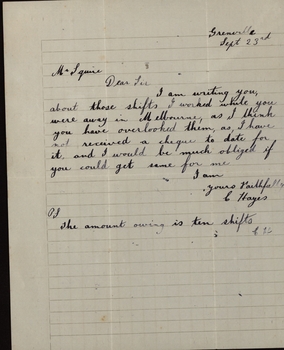 Grenville
Sept 23rd
Mr Squire
Dear Sir
I am writing you,
about those shifts I worked while you
were away in Melbourne, as I think
you have overlooked them, as I have
not received a cheque to date for
it, and I would be much obliged if
you could get same for me
I am
Yours Faithfully
C Hayes
PS
The amount owing is ten shifts